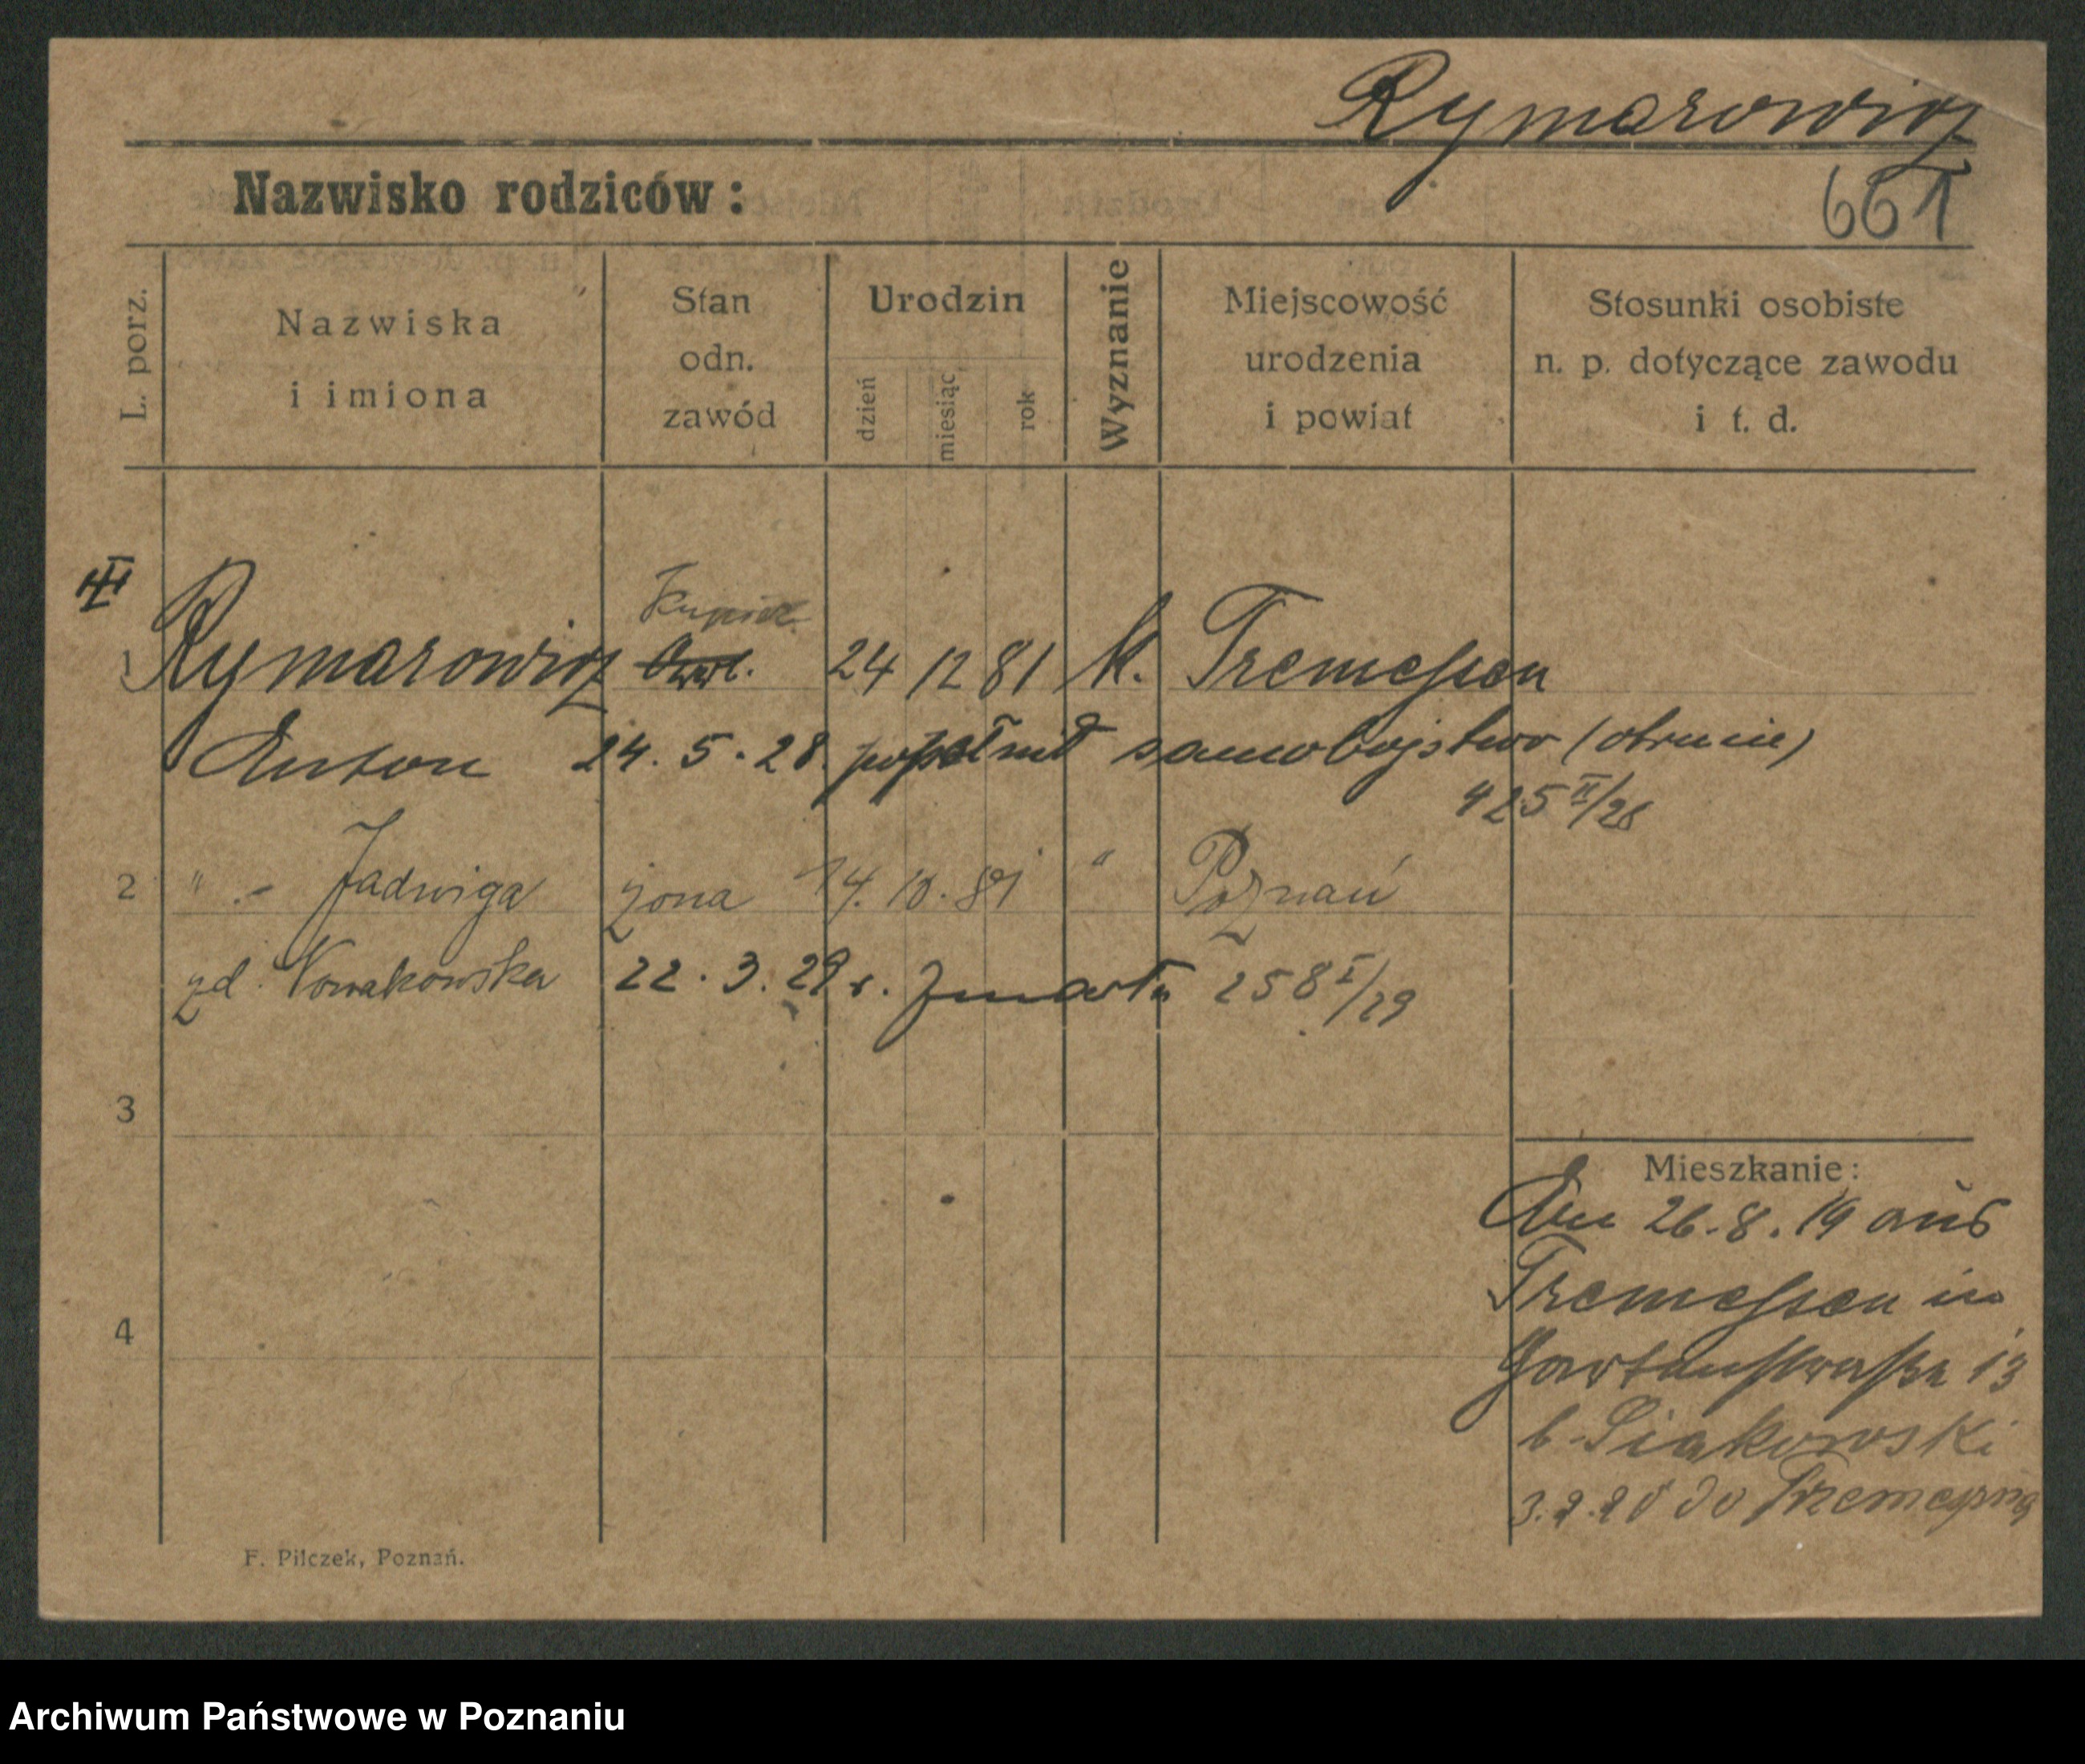 Rymarowicz
661
Nazwisko rodziców:
L. porz.
Nazwiska
i imiona
Stan
odn.
zawód
Urodzin
dzień
miesiąc
rok
Wyznanie
Miejscowość
urodzenia
i powiat
Stosunki osobiste
n. p. dotyczące zawodu
i t. d.
III
Kupiec
1 Rymarowicz 24 12 81 k. Tremessen
Anton 24. 5. 28. popełnił samobojstwo (otrucie)
425 II/28
2 " - Jadwiga żona 14. 10. 81 " Poznań
zd. Nowakowska 22. 3. 29 r. zmarła 258 I/29
3
Mieszkanie:
Am 26.8.19 aus
Tremessen in
4
Gartenstrasse 13
b.
do
F. Pilczek, Poznań.
Archiwum Państwowe w Poznaniu